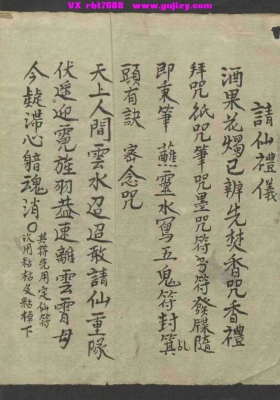 VX rbt7088    www.gujizy.com
請仙禮儀
酒果花燭已辦先焚香咒香禮
拜咒紙咒筆咒墨咒符多符發牒隨
即東筆蘸靈水寫五鬼符封箕
頭有訣 審念咒
天上人間雲水迢迢敢請仙童隊
伏速迎霓旌羽益速離雲霄毋
令凝滯心黯魂消〇
其符先用定仙符
次用粘粘及粘棹下
www.gujizy.com